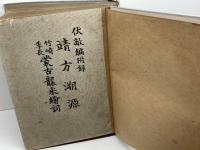 伏敵編附録
靖方溯源
竹崎季長
蒙古襲来絵詞